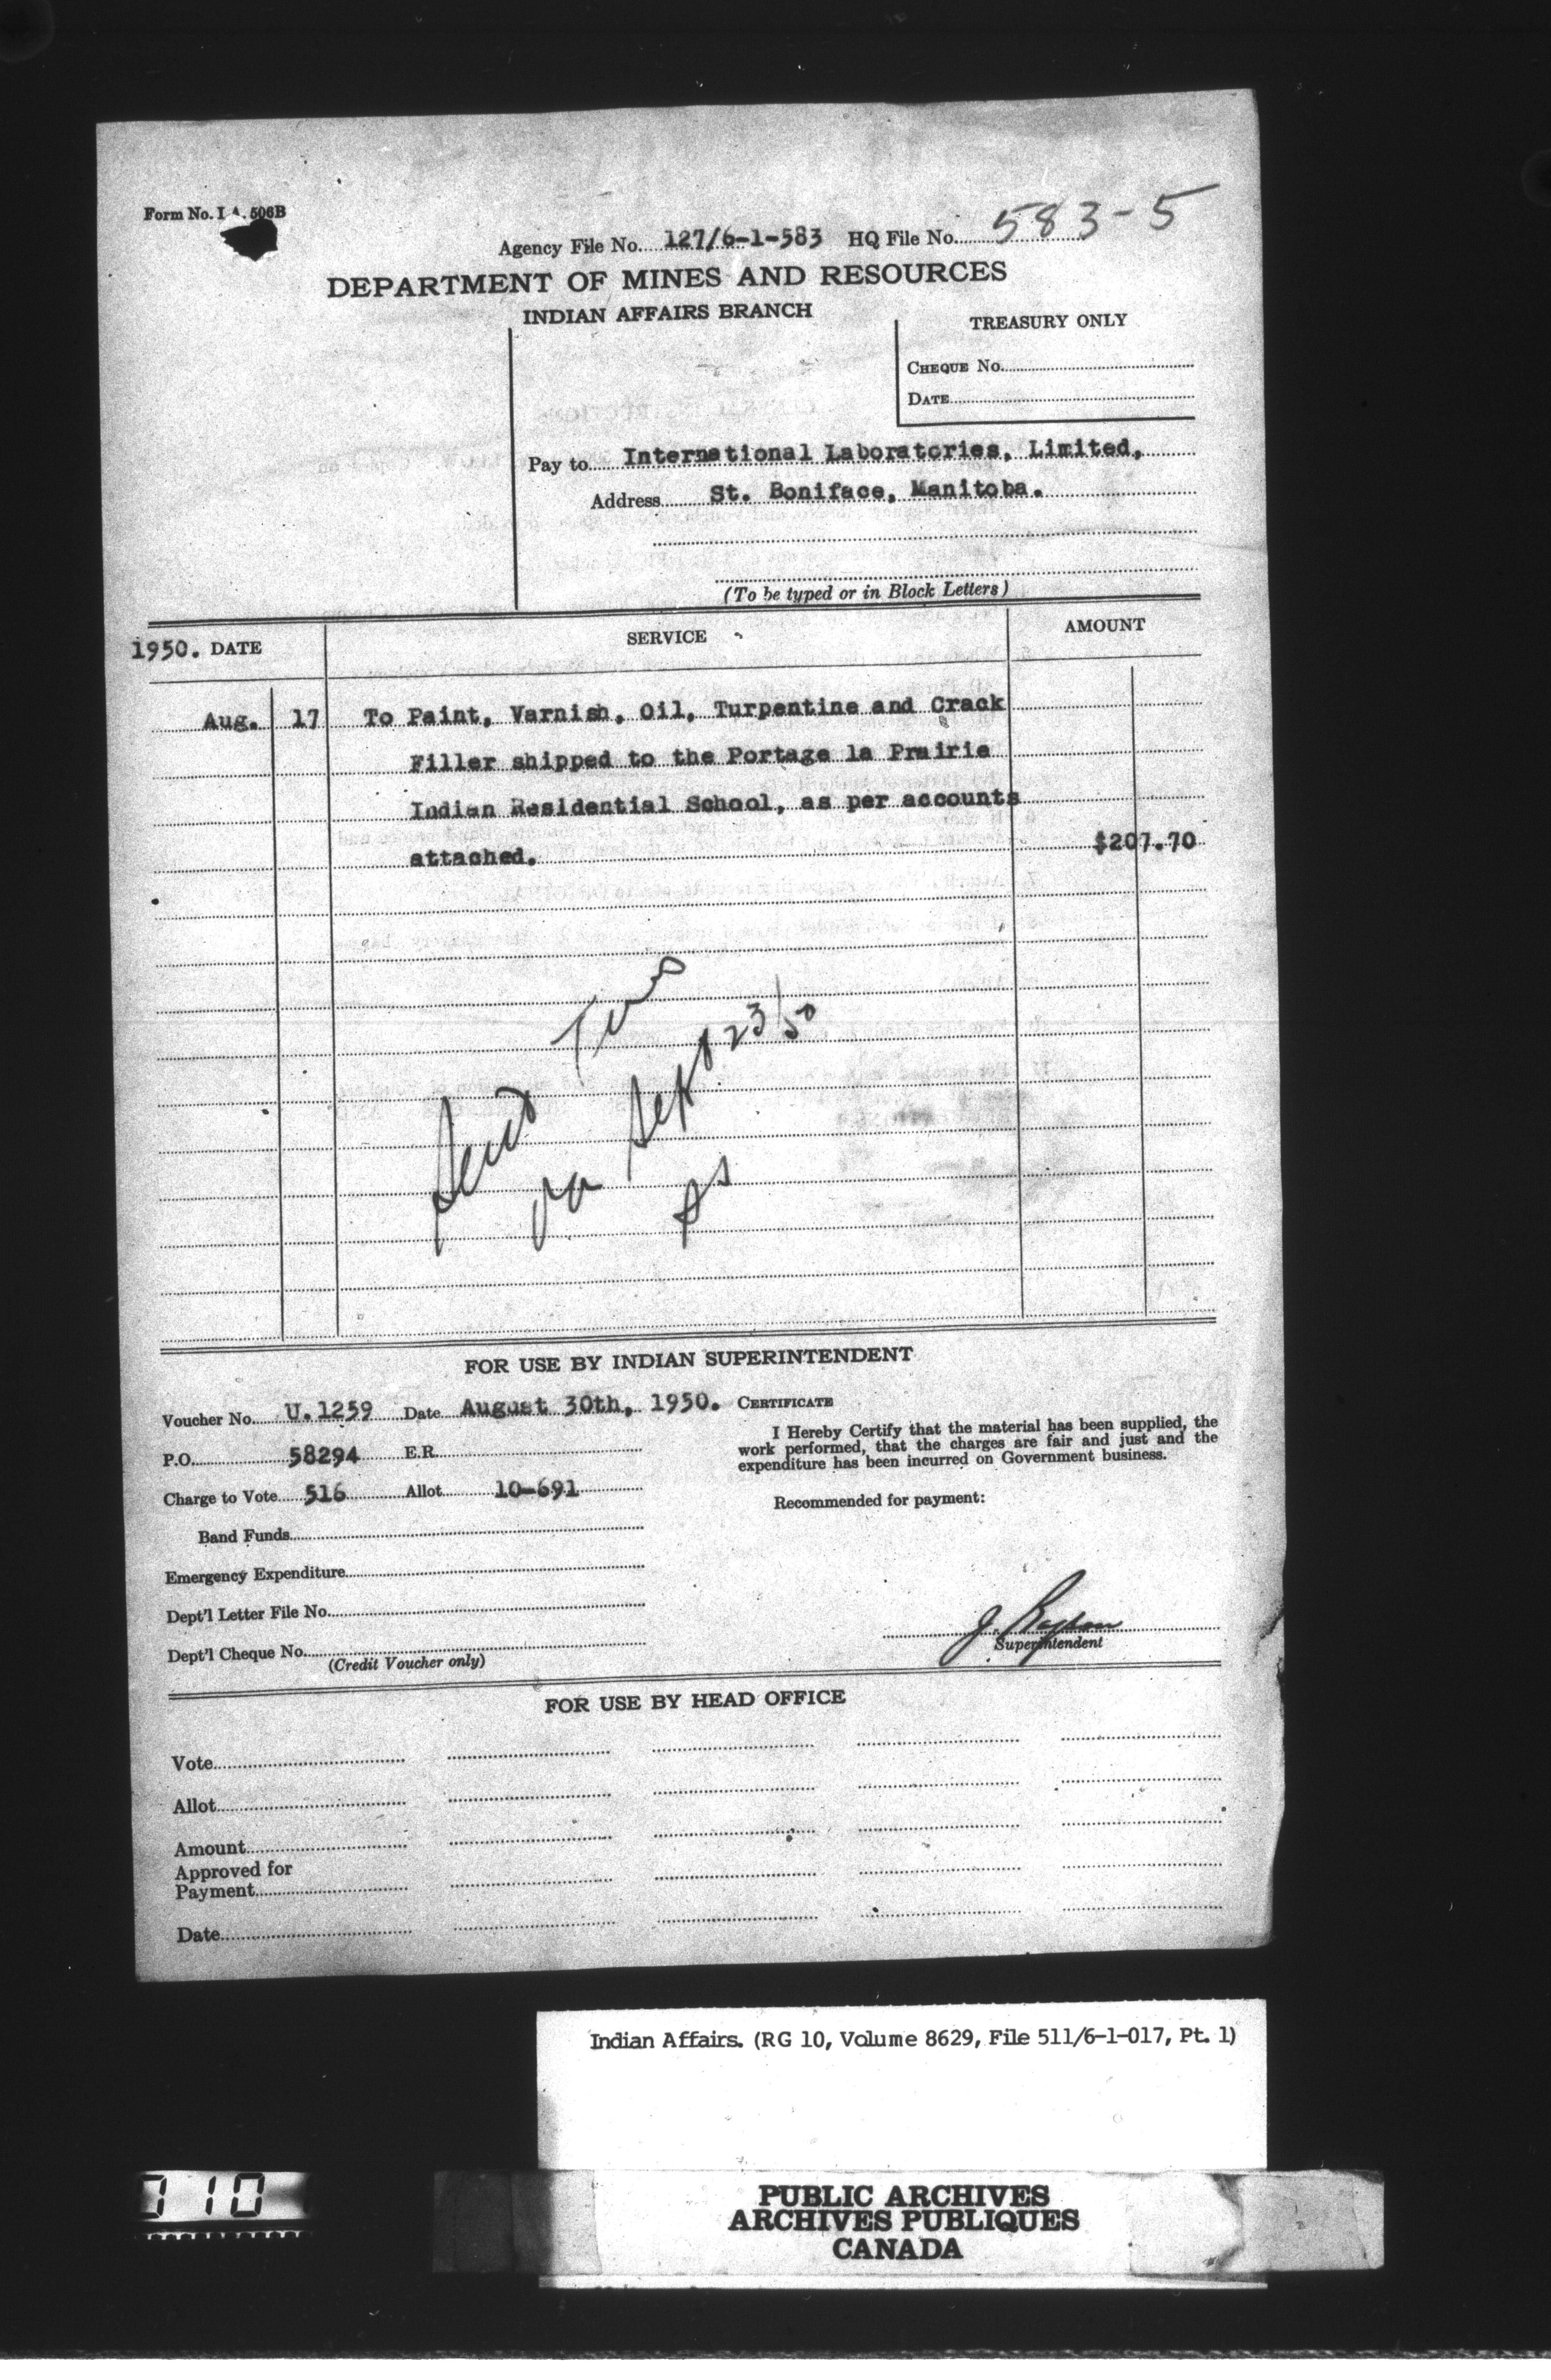 Form No. I.A. 506B
Agency File No. 127/6-1-583 HQ File No. 583-5
DEPARTMENT OF MINES AND RESOURCES
INDIAN AFFAIRS BRANCH
TREASURY ONLY
CHEQUE No.
DATE
Pay to International Laboratories, Limited,
Address St. Boniface, Manitoba.
(To be typed or in Block Letters)
1950. DATE SERVICE AMOUNT
Aug. 17 To Paint, Varnish, Oil, Turpentine and Crack
Filler shipped to the Portage la Prairie
Indian Residential School, as per accounts
attached. $207.70
Sept 23/50
FOR USE BY INDIAN SUPERINTENDENT
Voucher No. U.1259 Date August 30th, 1950.
P.O. 58294 E.R.
Charge to Vote 516 Allot. 10-691
Band Funds
Emergency Expenditure
Dept'l Letter File No.
Dept'l Cheque No.
(Credit Voucher only)
CERTIFICATE
I Hereby Certify that the material has been supplied, the
work performed, that the charges are fair and just and the
expenditure has been incurred on Government business.
Recommended for payment:
Superintendent
FOR USE BY HEAD OFFICE
Vote
Allot.
Amount
Approved for
Payment
Date
Indian Affairs. (RG 10, Volume 8629, File 511/6-1-017, Pt. 1)
710
PUBLIC ARCHIVES
ARCHIVES PUBLIQUES
CANADA